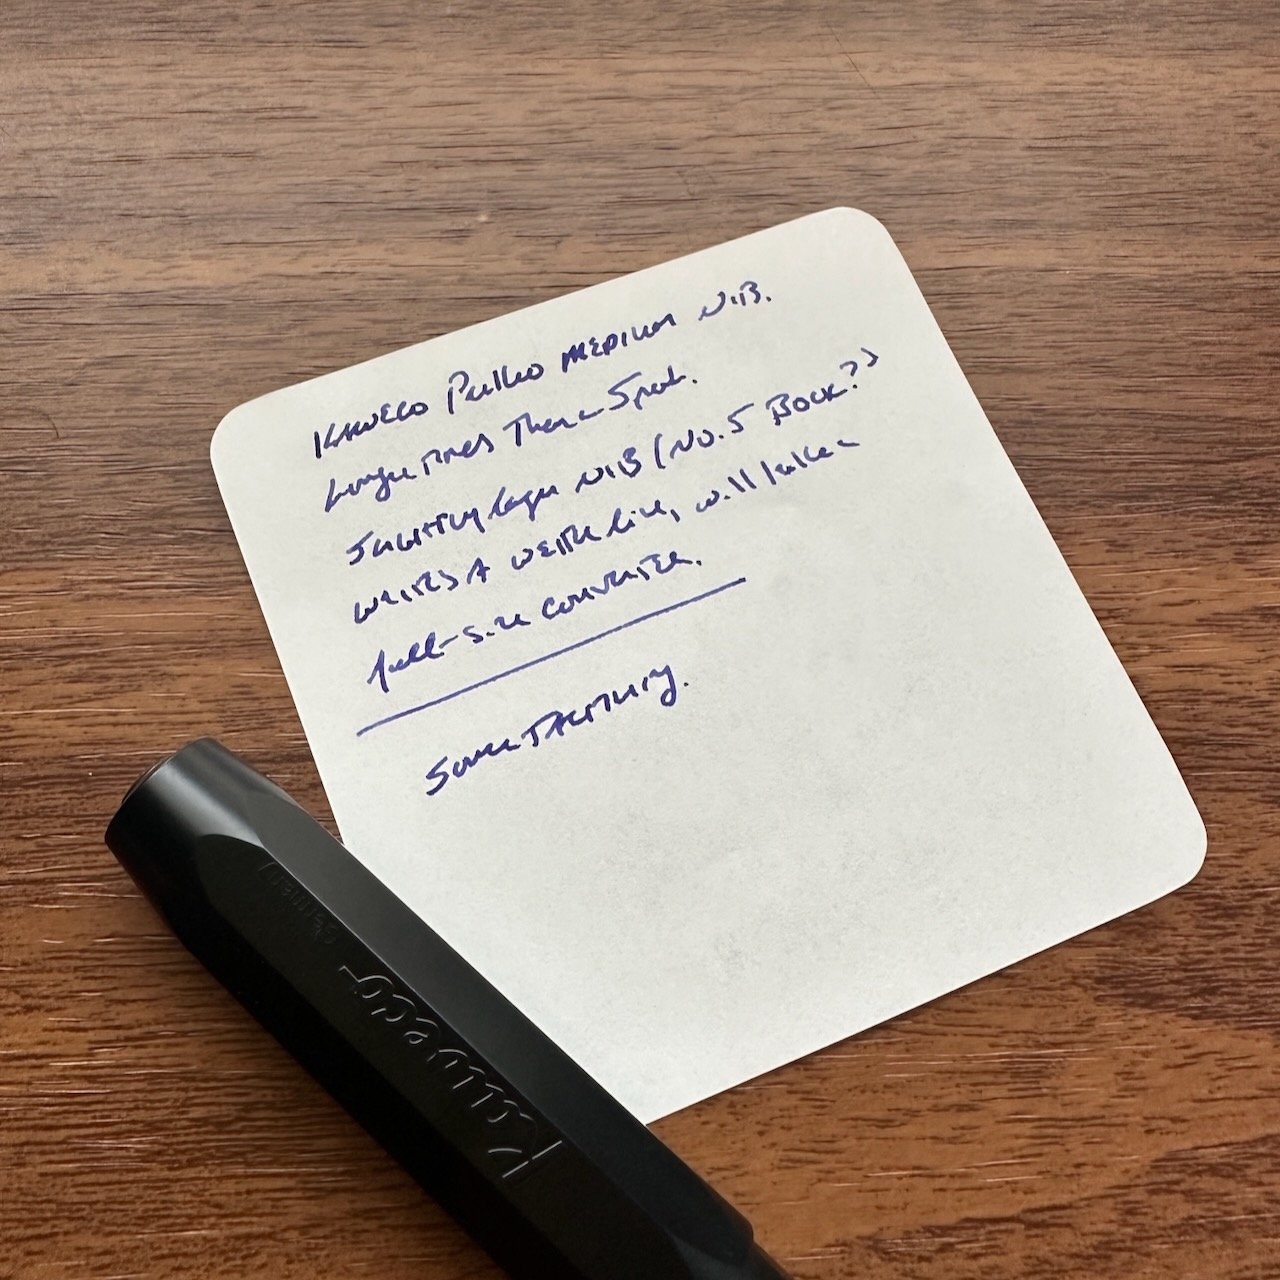 KAWECO Perkeo MEDIUM NIB.
Longer pines Then a Sport.
Slightly larger NIB (No. 5 Bock?)
writes A wetter line, will take a
full-size converter.
Some Feathering.
Kaweco
Germany